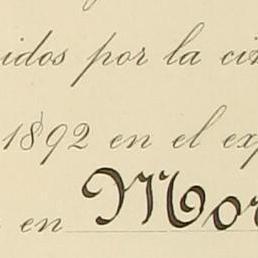 idos por la ci
1892 en el exp
en Mor